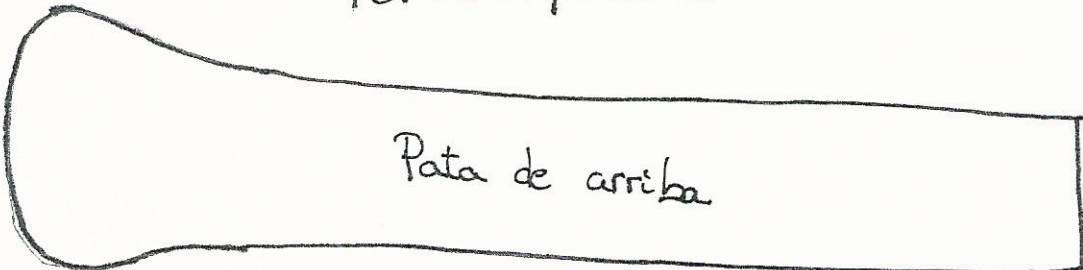 Pata de arriba